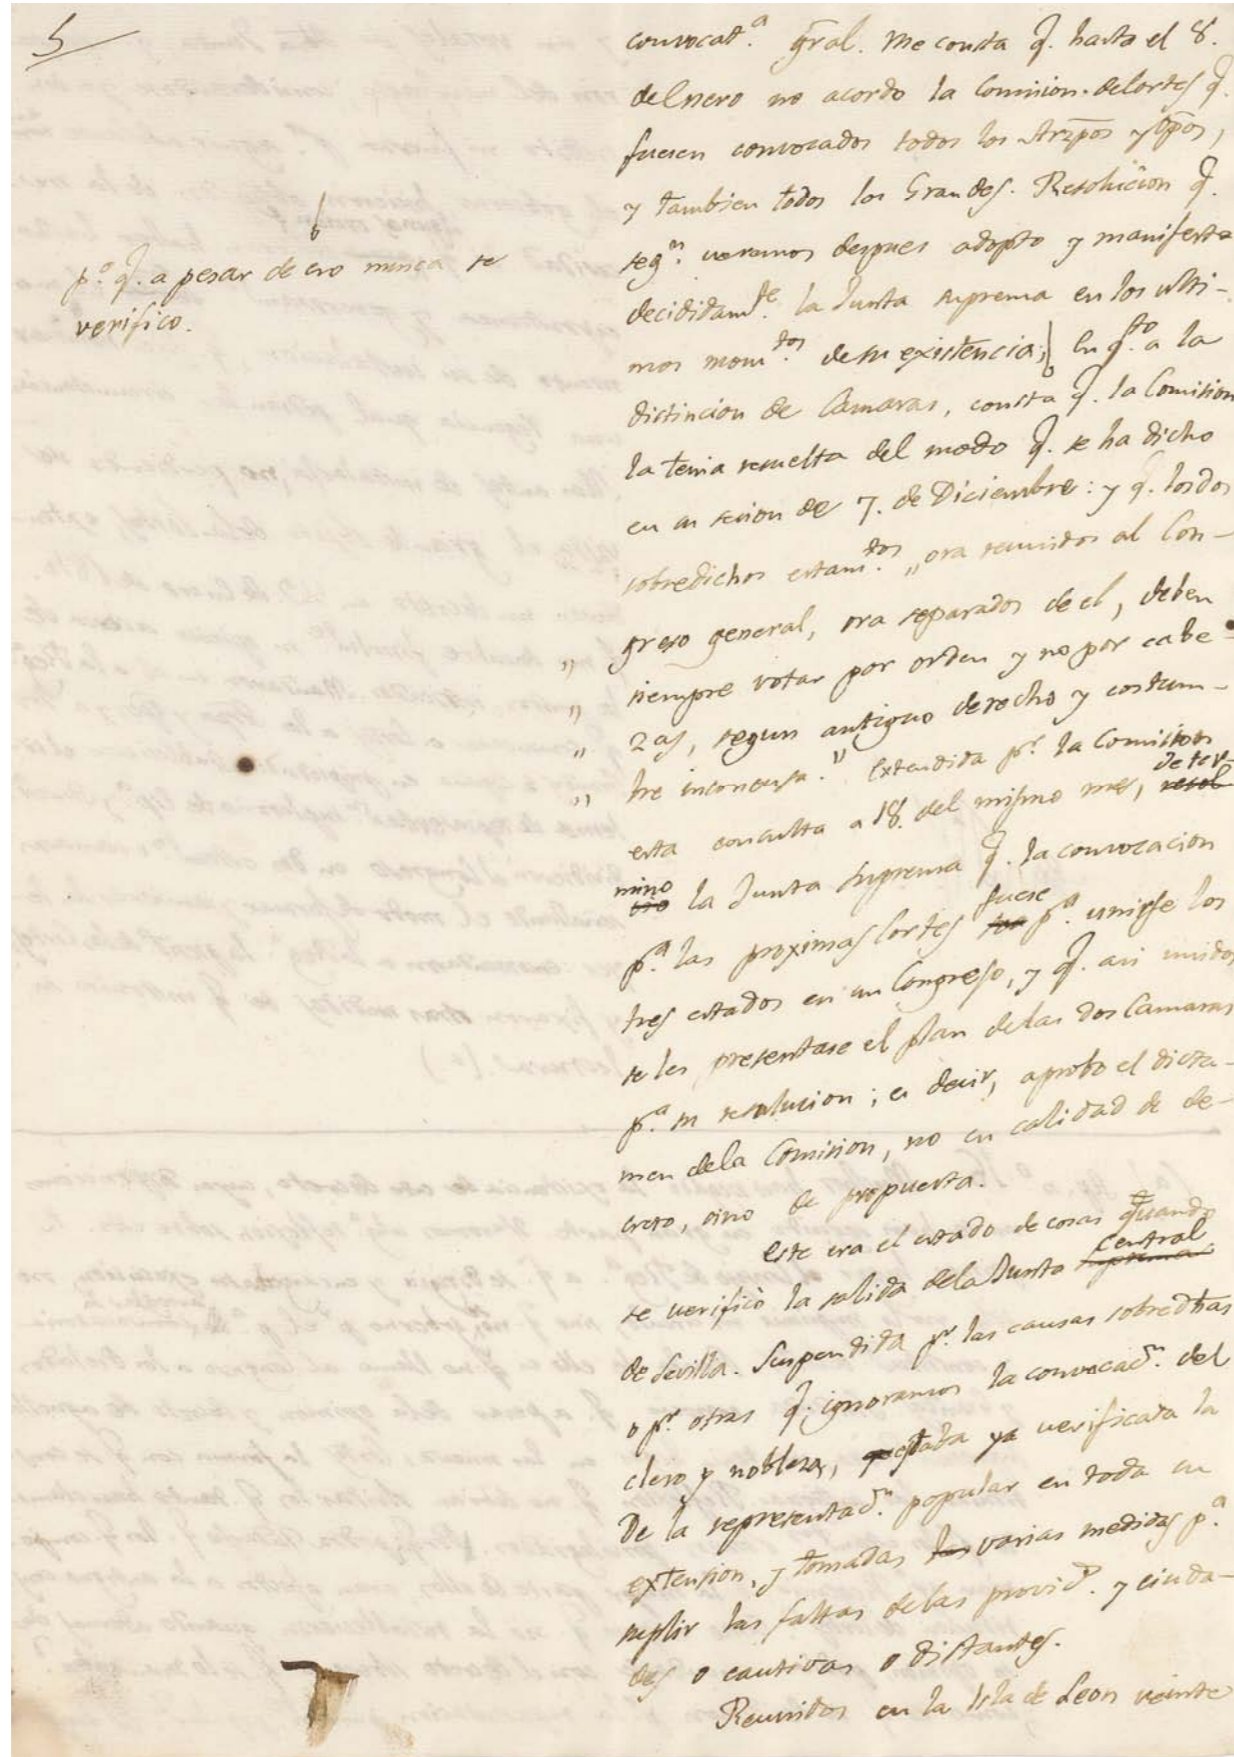 5
convocat.ª gr̄al. Me consta q̃. hasta el 8.
de Enero no acordo la Comision de Cortes q̃.
fuesen convocados todos los Arzp̄os y Obp̄os,
y tambien todos los Grandes. Resolucion q̃.
seg.ⁿ veremos despues adopto y manifesto
decididam.te la Junta suprema en los ulti-
mos mom.tos de su existencia; En q.to a la
distincion de Camaras, consta q̃. la Comision
la tenia resuelta del modo q̃. se ha dicho
en su sesion de 7. de Diciembre: y q̃. los dos
sobredichos estam.tos „ora reunidos al Con-
„ greso general, ora separados de el, deben
„ siempre votar por orden y no por cabe-
„ zas, segun antiguo derecho y costum-
„ bre inconcusa." Extendida p.r la Comision
esta consulta a 18. del mismo mes, resol deter-
vio mino la Junta Suprema q̃. la convocacion
p.ª las proximas Cortes fuese p.ª unirse los
tres estados en un Congreso, y q̃. asi unidos
se les presentase el plan de las dos Camaras
p.ª su resolucion; es decir, aprobo el dicta-
men de la Comision, no en calidad de de-
creto, sino de propuesta.
Este era el estado de cosas quando
se verificò la salida de la Junta suprema central
de Sevilla. Suspendida p.r las causas sobredhas
o p.r otras q̃. ignoramos la convocac.ⁿ del
clero y nobleza, estaba ya verificada la
De la representac.ⁿ popular en toda su
extension, y tomadas las varias medidas p.ª
suplir las faltas de las provic.s y ciuda-
des o cautivas o distantes.
Reunidos en la Isla de Leon veinte
b
p.º q̃. a pesar de eso nunca se
verifico.